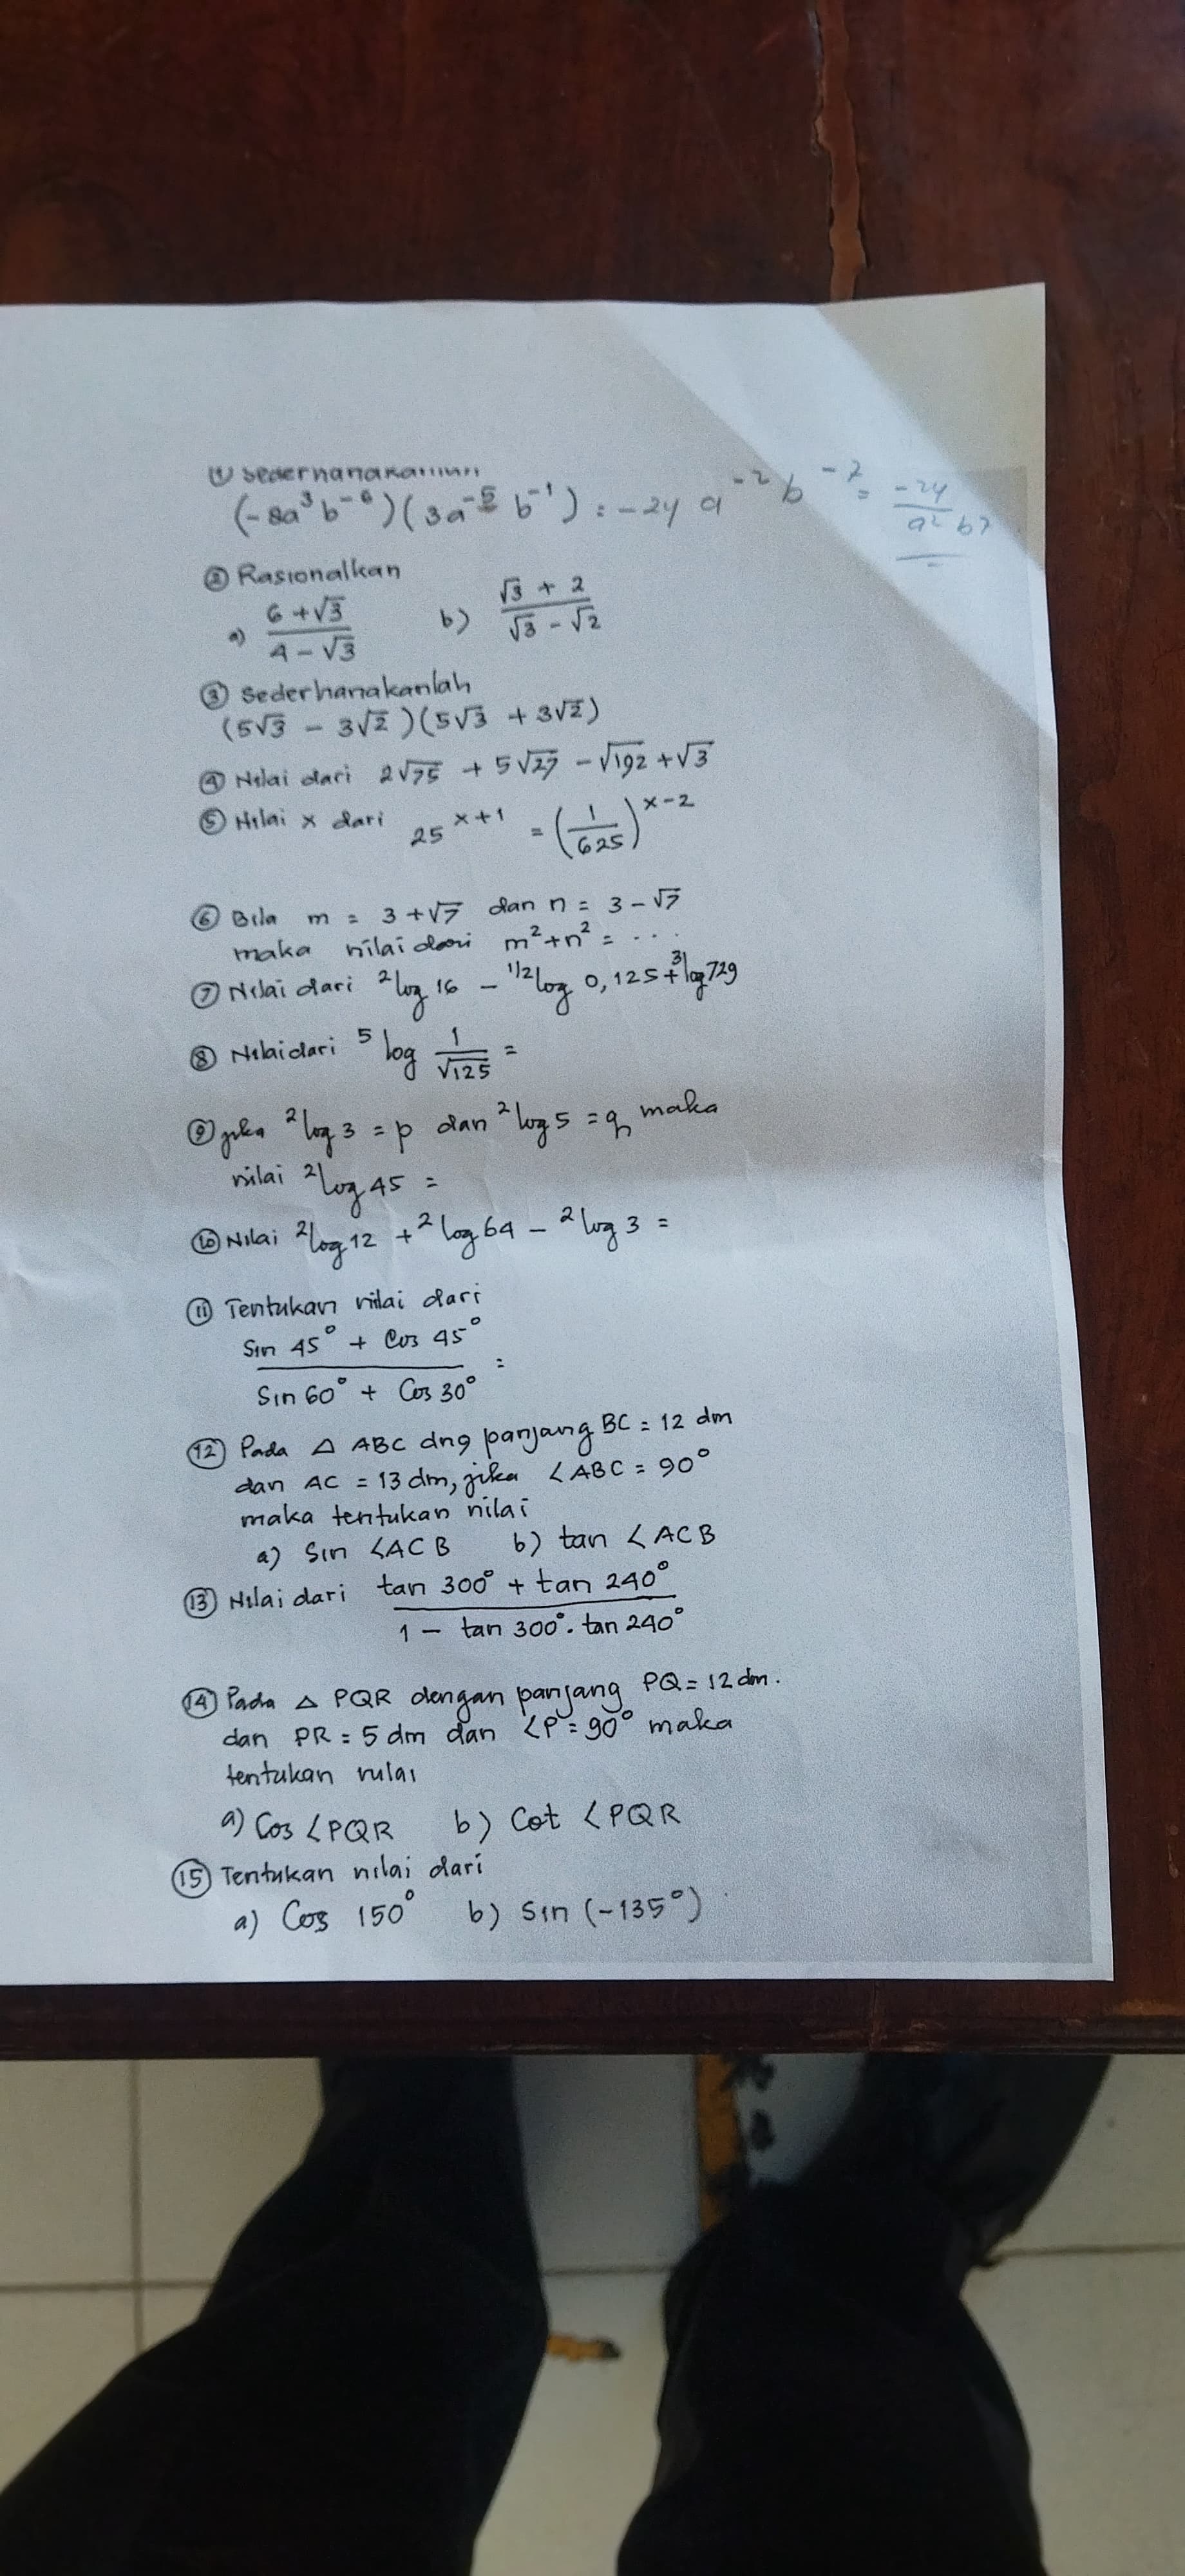 ① Sederhanakanlah
(-8a³b⁻⁶)(3a⁻⁵ b⁻¹) = -24 a⁻² b⁻⁷ = -24/a² b7
② Rasionalkan
a) (6 + √3)/(4 - √3) b) (√3 + 2)/(√3 - √2)
③ Sederhanakanlah
(5√3 - 3√2)(5√3 + 3√2)
④ Nilai dari 2√75 + 5√27 - √192 + √3
⑤ Nilai x dari 25^(x+1) = (1/625)^(x-2)
⑥ Bila m = 3 + √7 dan n = 3 - √7
maka nilai dari m² + n² = ...
⑦ Nilai dari ²log 16 - ^(1/2)log 0,125 + ³log 729
⑧ Nilai dari ⁵log 1/√125 =
⑨ jika ²log 3 = p dan ²log 5 = q maka
nilai ²log 45 =
⑩ Nilai ²log 12 + ²log 64 - ²log 3 =
⑪ Tentukan nilai dari
(Sin 45° + Cos 45°)/(Sin 60° + Cos 30°) =
⑫ Pada △ ABC dng panjang BC = 12 dm
dan AC = 13 dm, jika ∠ABC = 90°
maka tentukan nilai
a) Sin ∠ACB b) tan ∠ACB
⑬ Nilai dari (tan 300° + tan 240°)/(1 - tan 300° . tan 240°)
⑭ Pada △ PQR dengan panjang PQ = 12 dm.
dan PR = 5 dm dan ∠P = 90° maka
tentukan nilai
a) Cos ∠PQR b) Cot ∠PQR
⑮ Tentukan nilai dari
a) Cos 150° b) Sin (-135°)